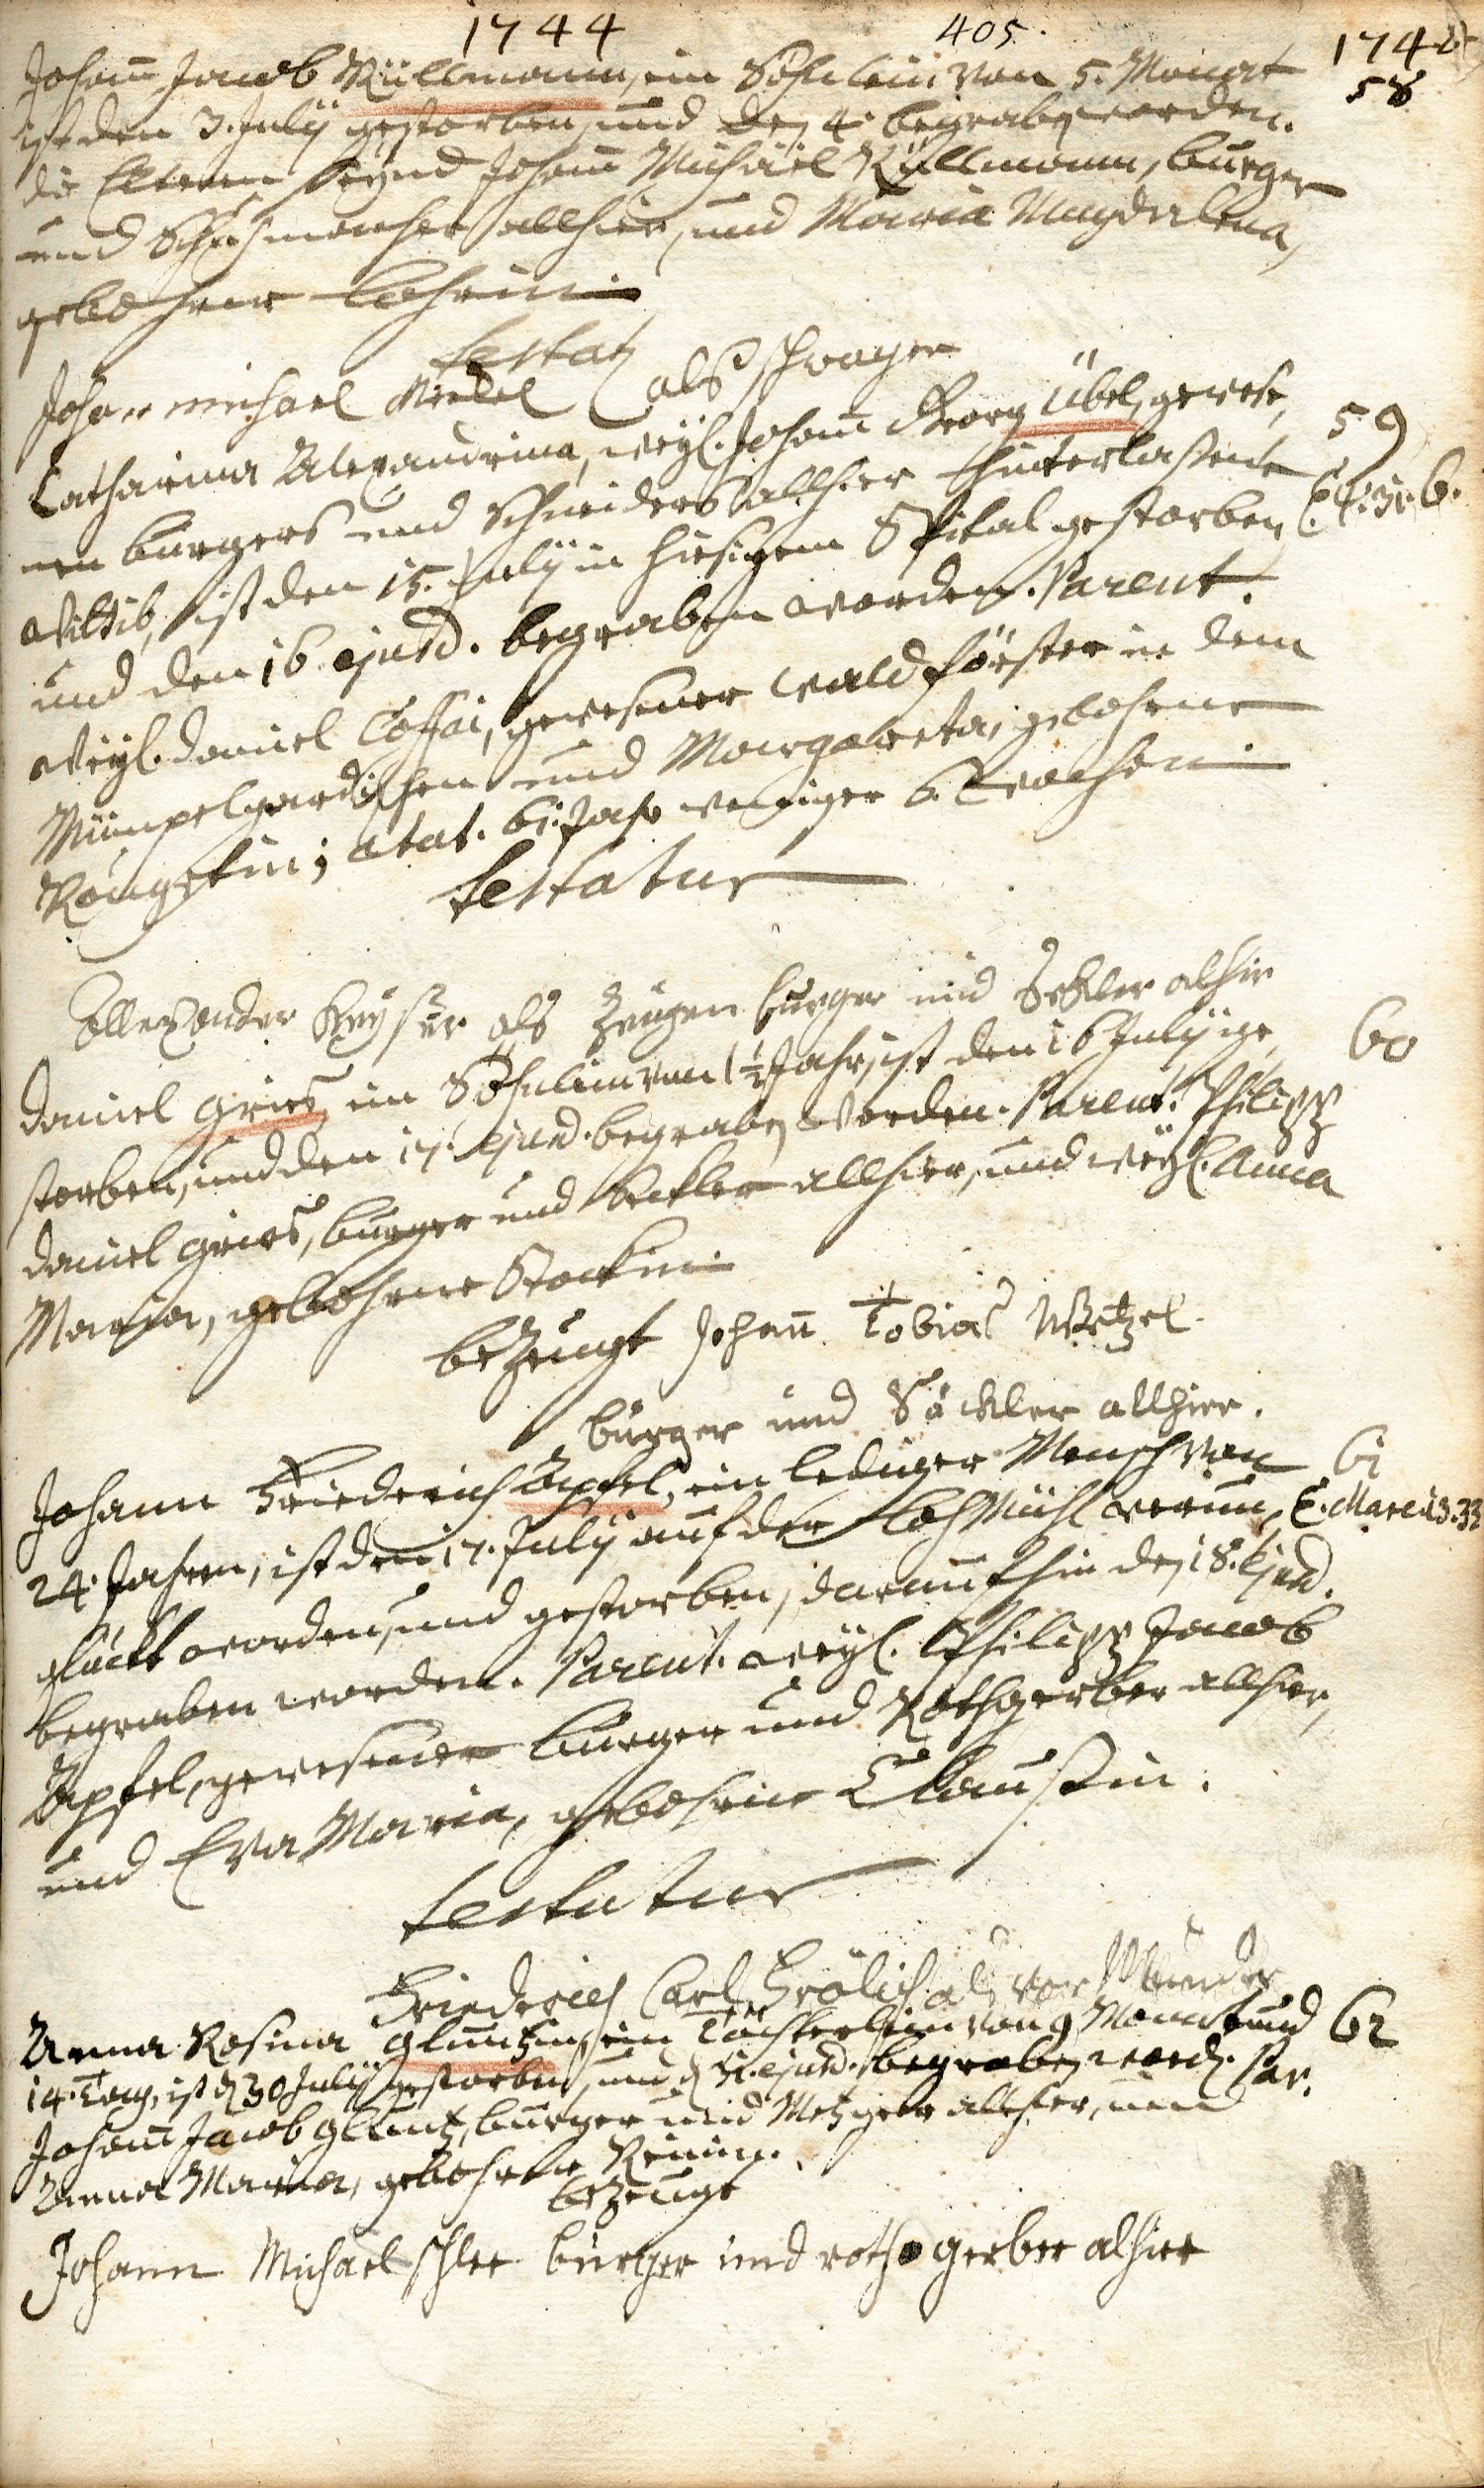 1744 405. 1744
Johann Jacob Küllmann, ein Söhnlein von 5. Monat 58
ist den 3. July gestorben, und den 4. begraben worden.
die Elteren seynd Johann Michäel Küllmann, burger
und Schuhmacher allhier, und Maria Magdalena,
gebohrne
testatur
Johann michael als schwager
Catharina Alexandrina, weyl. Johann Georg Übel, gewese, 59
nen burgers und Schneiders allhier hinterlaßene
Wittib, ist den 15. July in hiesigem Spital gestorben,
und den 16 ejusd. begraben worden. Parent.
weyl. Daniel gewesener Waldförster in dem
Mümpelgardischen und Margareta, gebohrne
ætat. 61. Jahr weniger 6. Wochen
testatur
Allexander Keyser als Zeugen burger und Seckler alhir
Daniel Gries, ein Söhnlein von 1 1/2 Jahr, ist den 16 July ge, 60
storben, und den 17. ejusd. begraben worden. Parent. Philipp
Daniel Gries, burger und Seckler allhier, und weyl. Anna
Maria, gebohrne Stockin
bezeugt Johann Tobias Wetzel
burger und Säckler allhier.
Johann Friederich Apfel, ein lediger Mensch von 61
24. Jahren, ist den 17. July auf der Loh Mühl verun, E. Marc. 13. 33
glückt worden, und gestorben, daraufhin den 18. ejusd.
begraben worden. Parent. weyl. Philipp Jacob
Apfel, gewesener burger und Rothgerber allhier,
und Eva Maria, gebohrne Claußin.
testatur
Friederich Carl Frölich als vor Munder
Anna Rosina Gluntzin, ein Töchterlein von 9 Monat und 62
14. Tag, ist d 30 July gestorben, und d 31. ejusd. begraben word. Par.
Johann Jacob Gluntz, burger und Metzger allhier, und
Anna Maria, gebohrne
bezeugt
Johann Michael Schler burger und roth gerber alhier